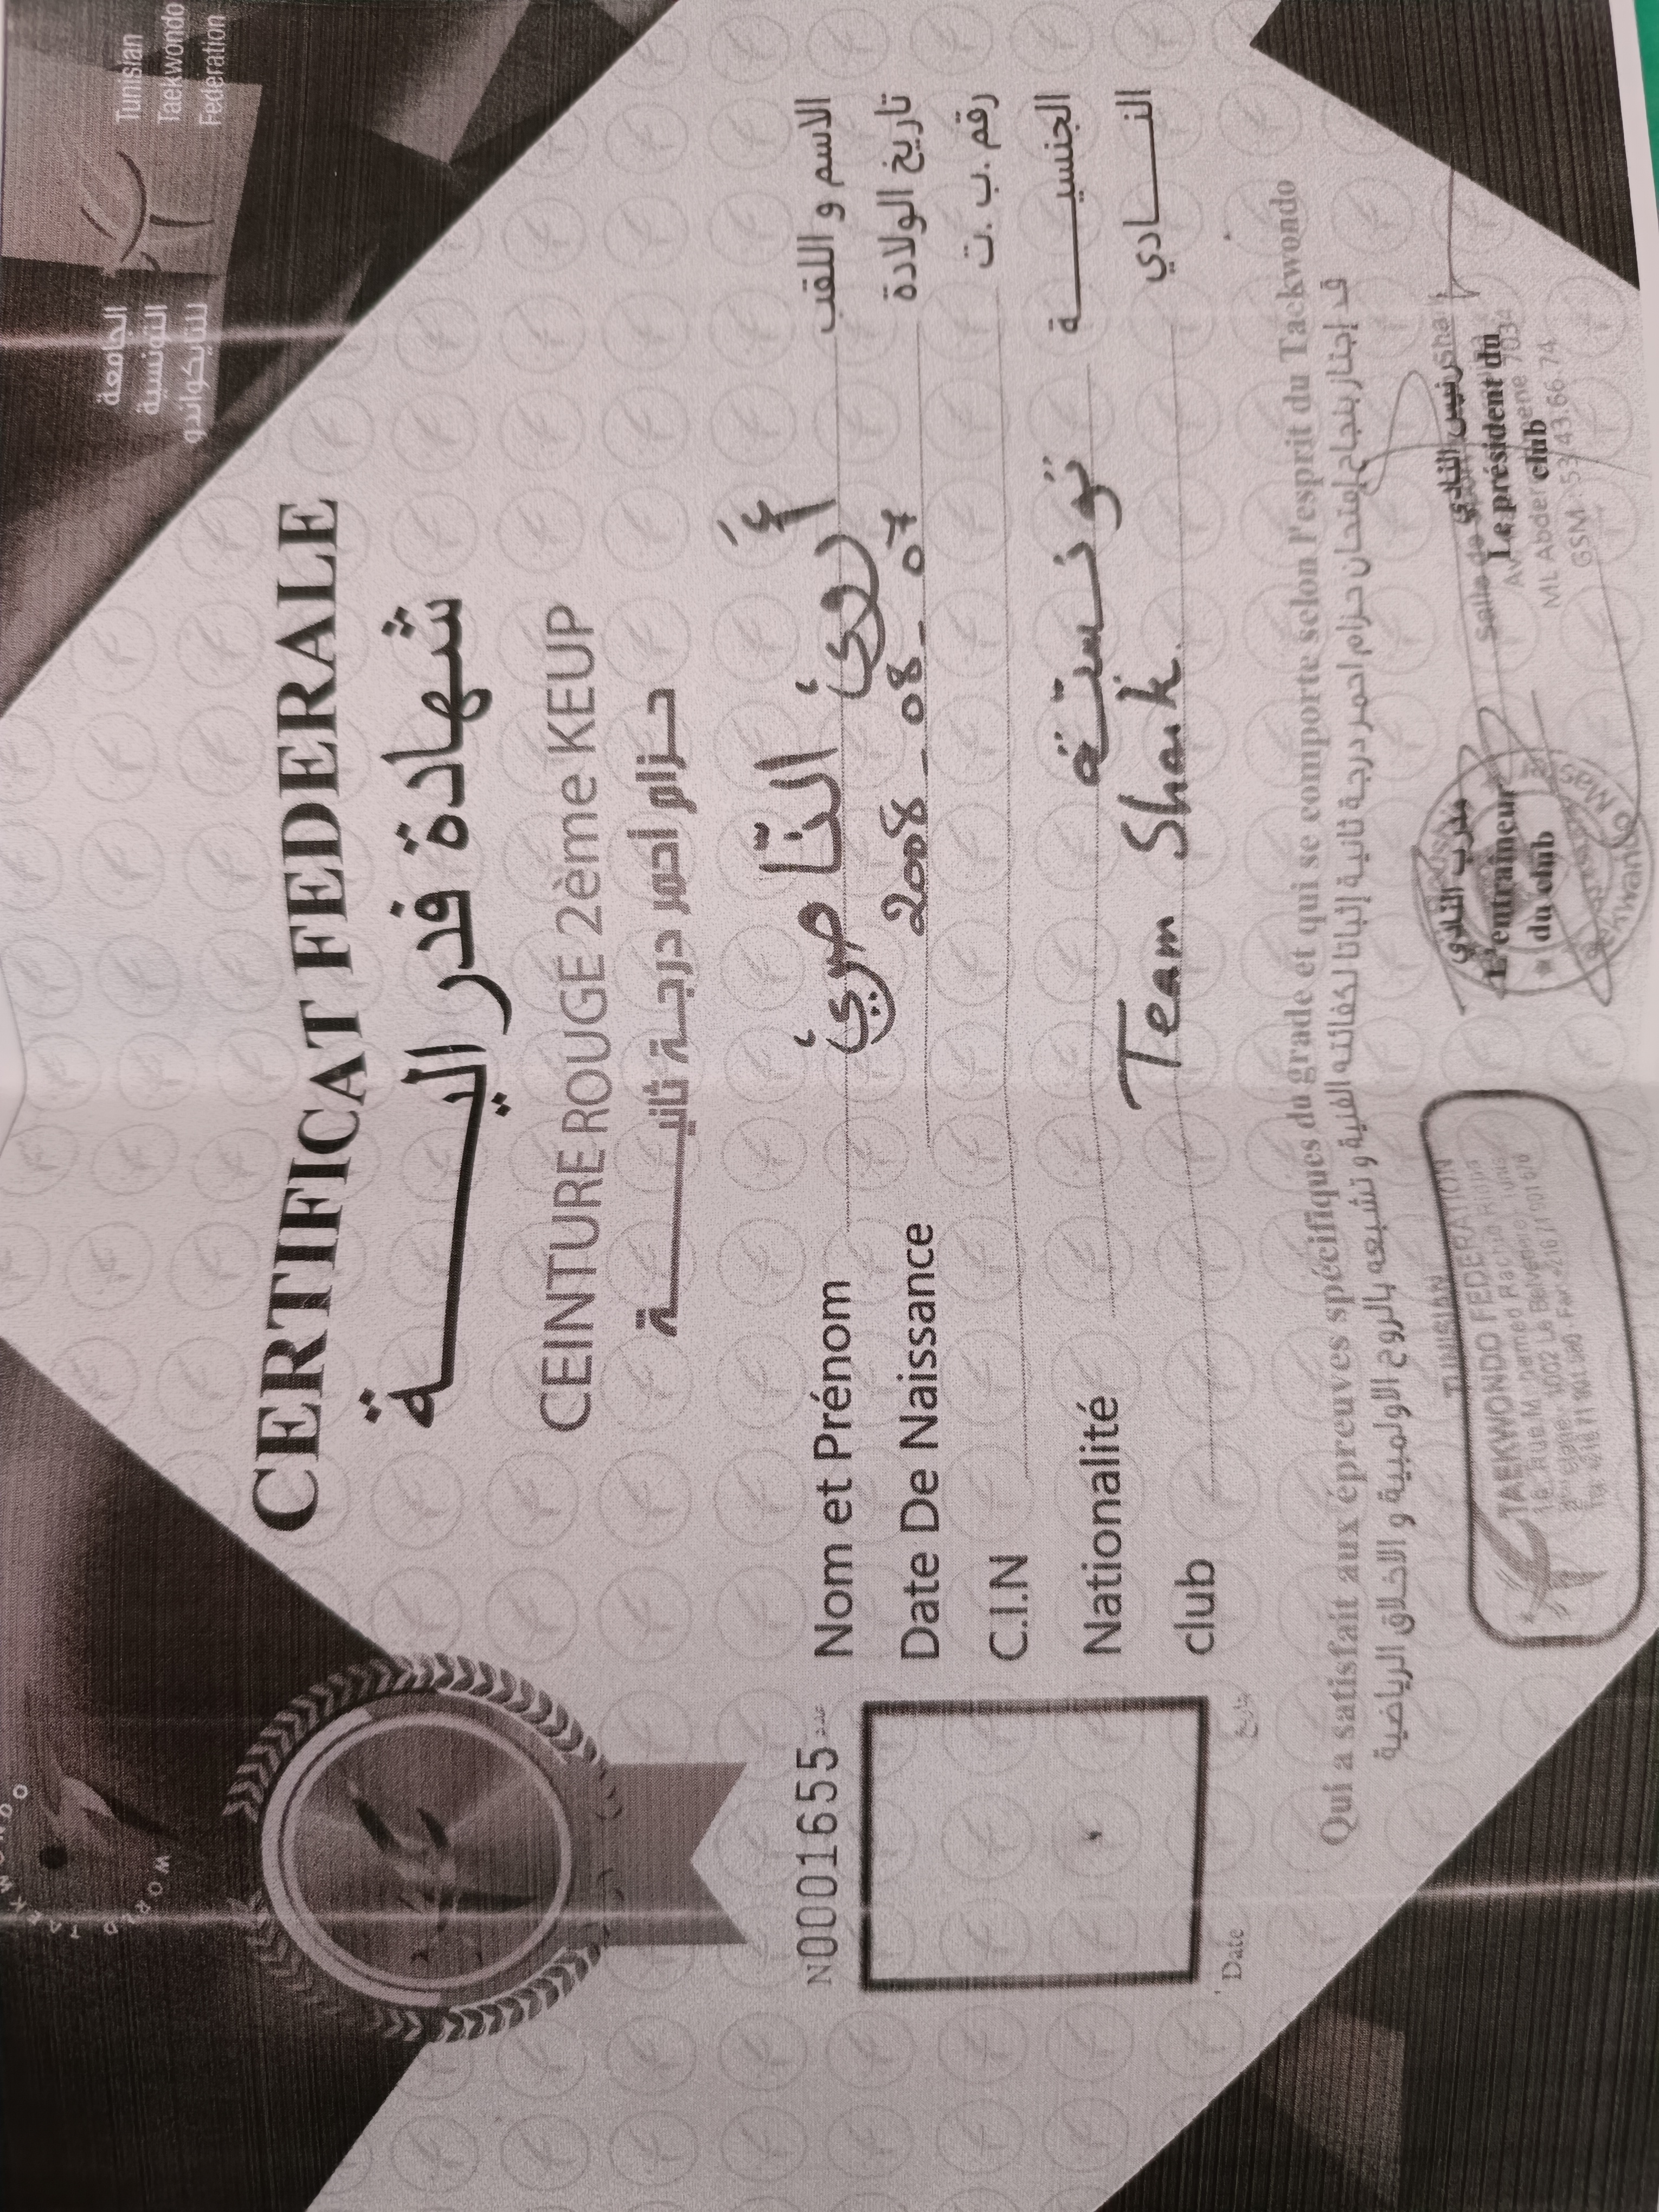 الجامعة
التونسية
للتايكواندو
Tunisian
Taekwondo
Federation
WORLD TAEKWONDO
CERTIFICAT FEDERALE
شهادة فدراليـــــة
CEINTURE ROUGE 2ème KEUP
حزام أحمر درجة ثانيـــــة
N0001655 عدد
Nom et Prénom أروى النّاصري الاسم و اللقب
Date De Naissance 2008 - 08 - 07 تاريخ الولادة
C.I.N رقم ب. ت.
Nationalité تونسيّة الجنسيـــــة
club Team Shark. النـــــادي
Date تاريخ
Qui a satisfait aux épreuves spécifiques du grade et qui se comporte selon l'esprit du Taekwondo
قد إجتاز بنجاح إمتحان حزام احمر درجة ثانية إثباتا لكفائته الفنية و تشبعه بالروح الاولمبية و الاخلاق الرياضية
TUNISIAN
TAEKWONDO FEDERATION
مدرب النادي
L'entraineur
du club
رئيس النادي
Le président du
club
Salle de
GSM : 53.43.66.74